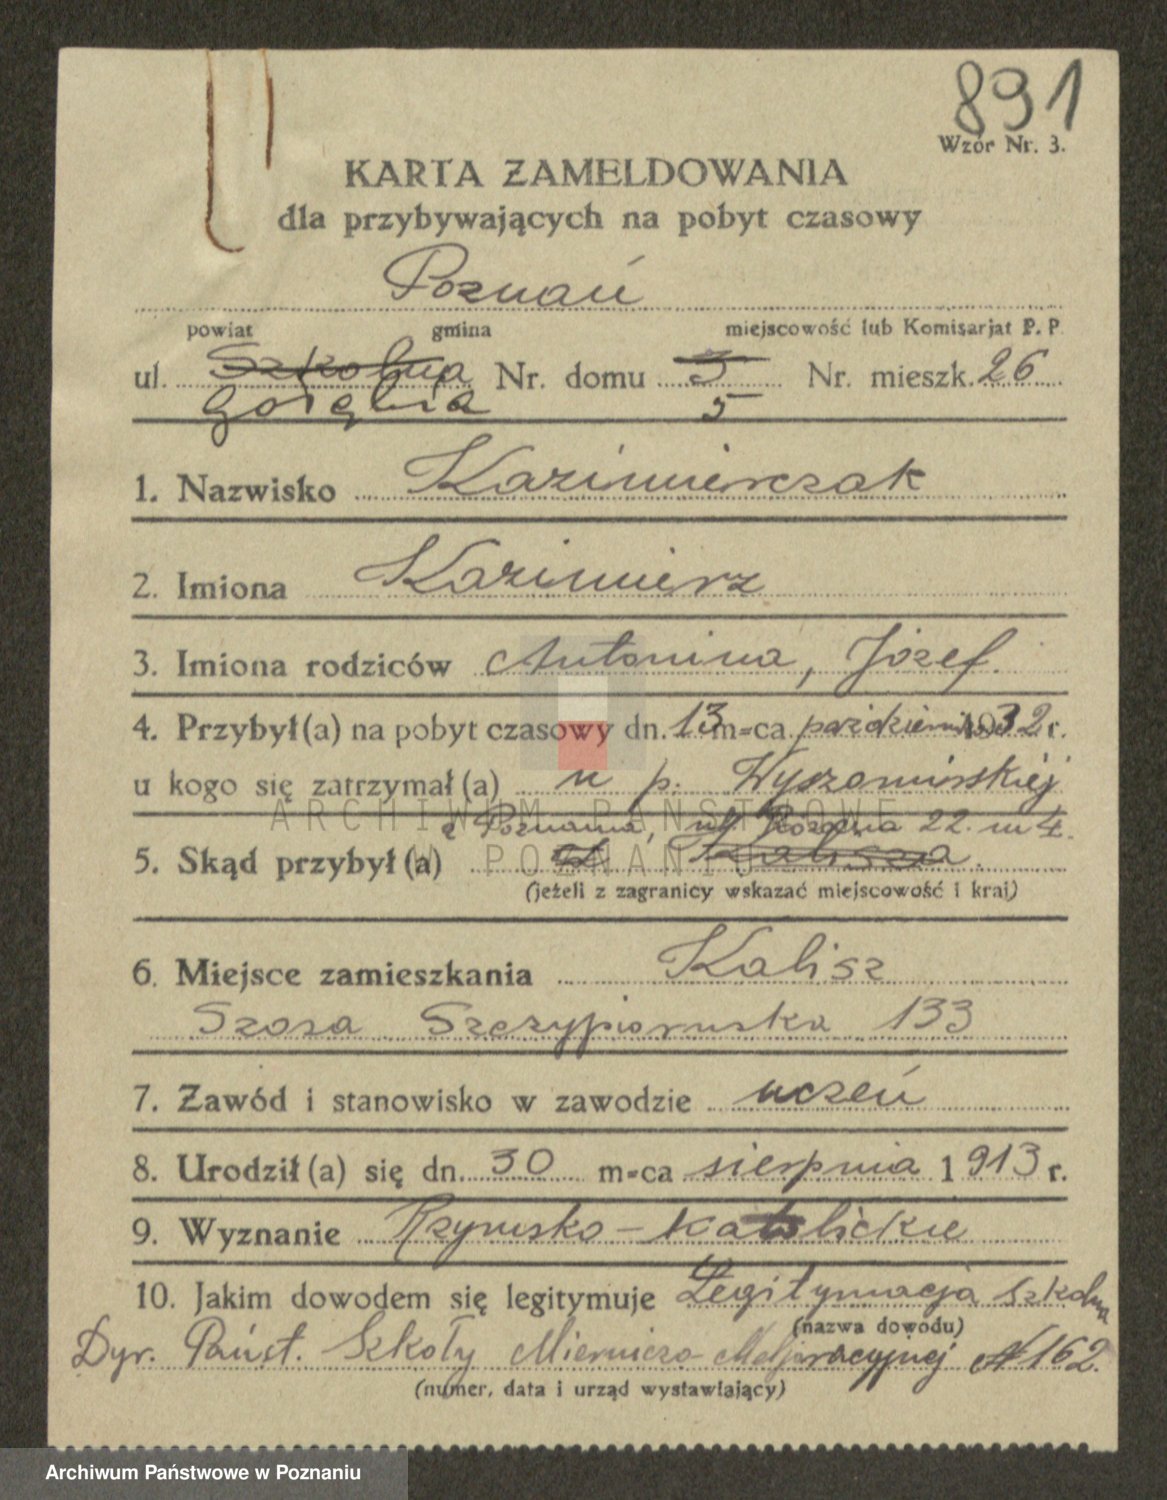 891
Wzór Nr. 3.
KARTA ZAMELDOWANIA
dla przybywających na pobyt czasowy
Poznań
powiat gmina miejscowość lub Komisarjat P. P
ul. Szkolna Nr. domu 3 Nr. mieszk. 26
Golębia 5
1. Nazwisko Kazimierczak
2. Imiona Kazimierz
3. Imiona rodziców Antonina, Józef.
4. Przybył(a) na pobyt czasowy dn. 13 m-ca październik 1932 r.
u kogo się zatrzymał(a) u p. Wyszomirskiej
ARCHIWUM PAŃSTWOWE
z Poznania, ul. 22. m 4.
5. Skąd przybył(a) z Kalisza.
W POZNANIU
(jeżeli z zagranicy wskazać miejscowość i kraj)
6. Miejsce zamieszkania Kalisz
Szosa Szczypiornska 133
7. Zawód i stanowisko w zawodzie uczeń
8. Urodził(a) się dn. 30 m-ca sierpnia 1913 r.
9. Wyznanie Rzymsko-katolickie
10. Jakim dowodem się legitymuje Legitymacja szkolna
(nazwa dowodu)
Dyr. Państ. Szkoły Mierniczo-Meljoracyjnej N 162.
(numer, data i urząd wystawiający)
Archiwum Państwowe w Poznaniu